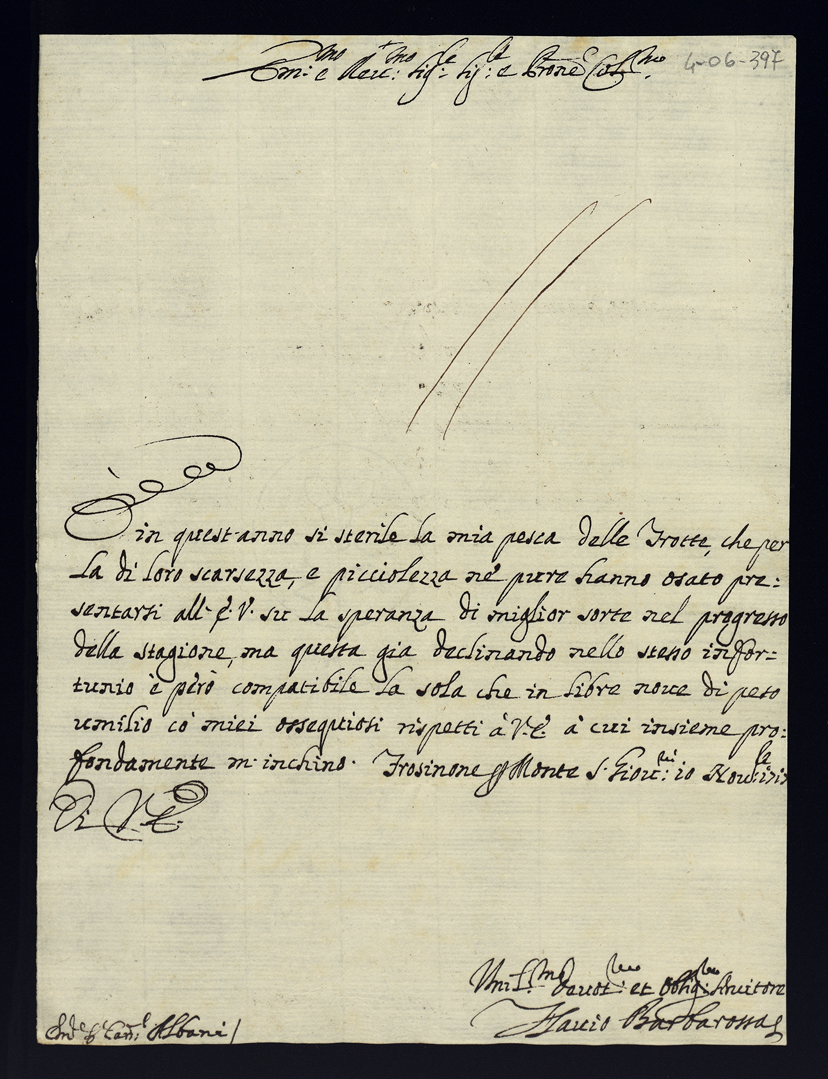 Em:mo e Reu:mo Sig:re Sig:re e Prone Col:mo
4-06-397
È in quest'anno si sterile la mia pesca delle Trotte, che per
la di loro scarsezza, e picciolezza ne' pure hanno osato pre:
sentarsi all' E. V. su la speranza di miglior sorte nel progresso
della stagione, ma questa gia declinando nello stesso infor-
tunio è però compatibile la sola che in libre noue di peso
umilio co' miei ossequiosi rispetti à V. E. à cui insieme pro:
fondamente m'inchino. Frosinone Monte S. Giou:ni 10 Nou:
Di V. E.
Umil:mo Deuot:mo et Oblig:mo Seruitore
Flauio Barbarossa
Sig:r Car:l Albani